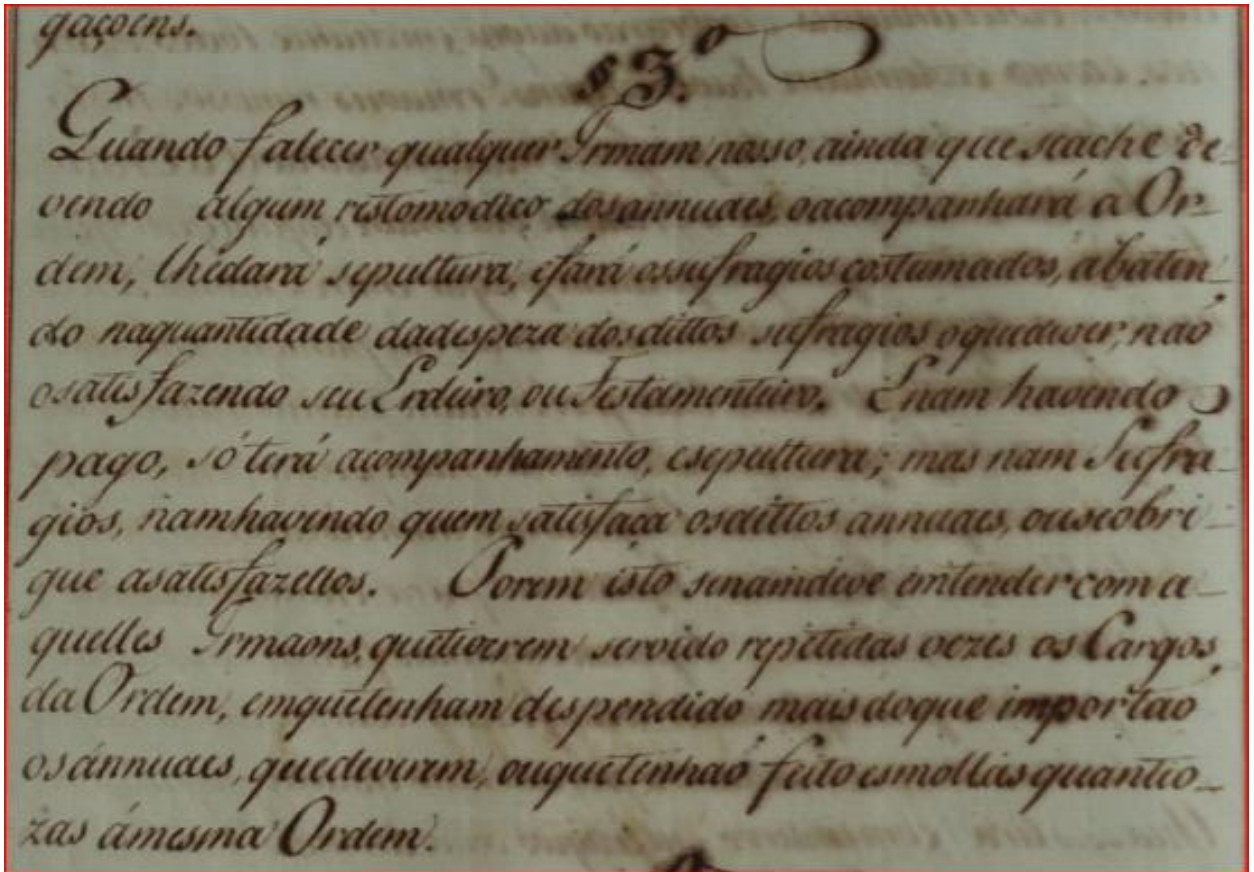 gaçoens.
§ 3.º
Quando falecer qualquer Irmam nosso, ainda que seache de-
vendo algum restomodico dosannuaes, oacompanhará a Or-
dem, lhedará sepultura, efará ossufragios costumados, abaten-
do naquantidade dadespeza dosdittos sufragios oquedever, naõ
osatisfazendo seu Erdeiro, ou Testamenteiro. Enam havendo
pago, só terá acompanhamento, esepultura; mas nam Sufra-
gios, namhavendo quem satisfaça osdittos annuaes, ouseobri-
gue asatisfazellos. Porem isto senamdeve emtender com a-
quelles Irmaons, quetiverem servido repetidas vezes os Cargos
da Ordem, emquetenham despendido maisdoque importaõ
osánnuaes, quedeverem, ouquetenhaõ feito esmollas quantio-
zas ámesma Ordem.